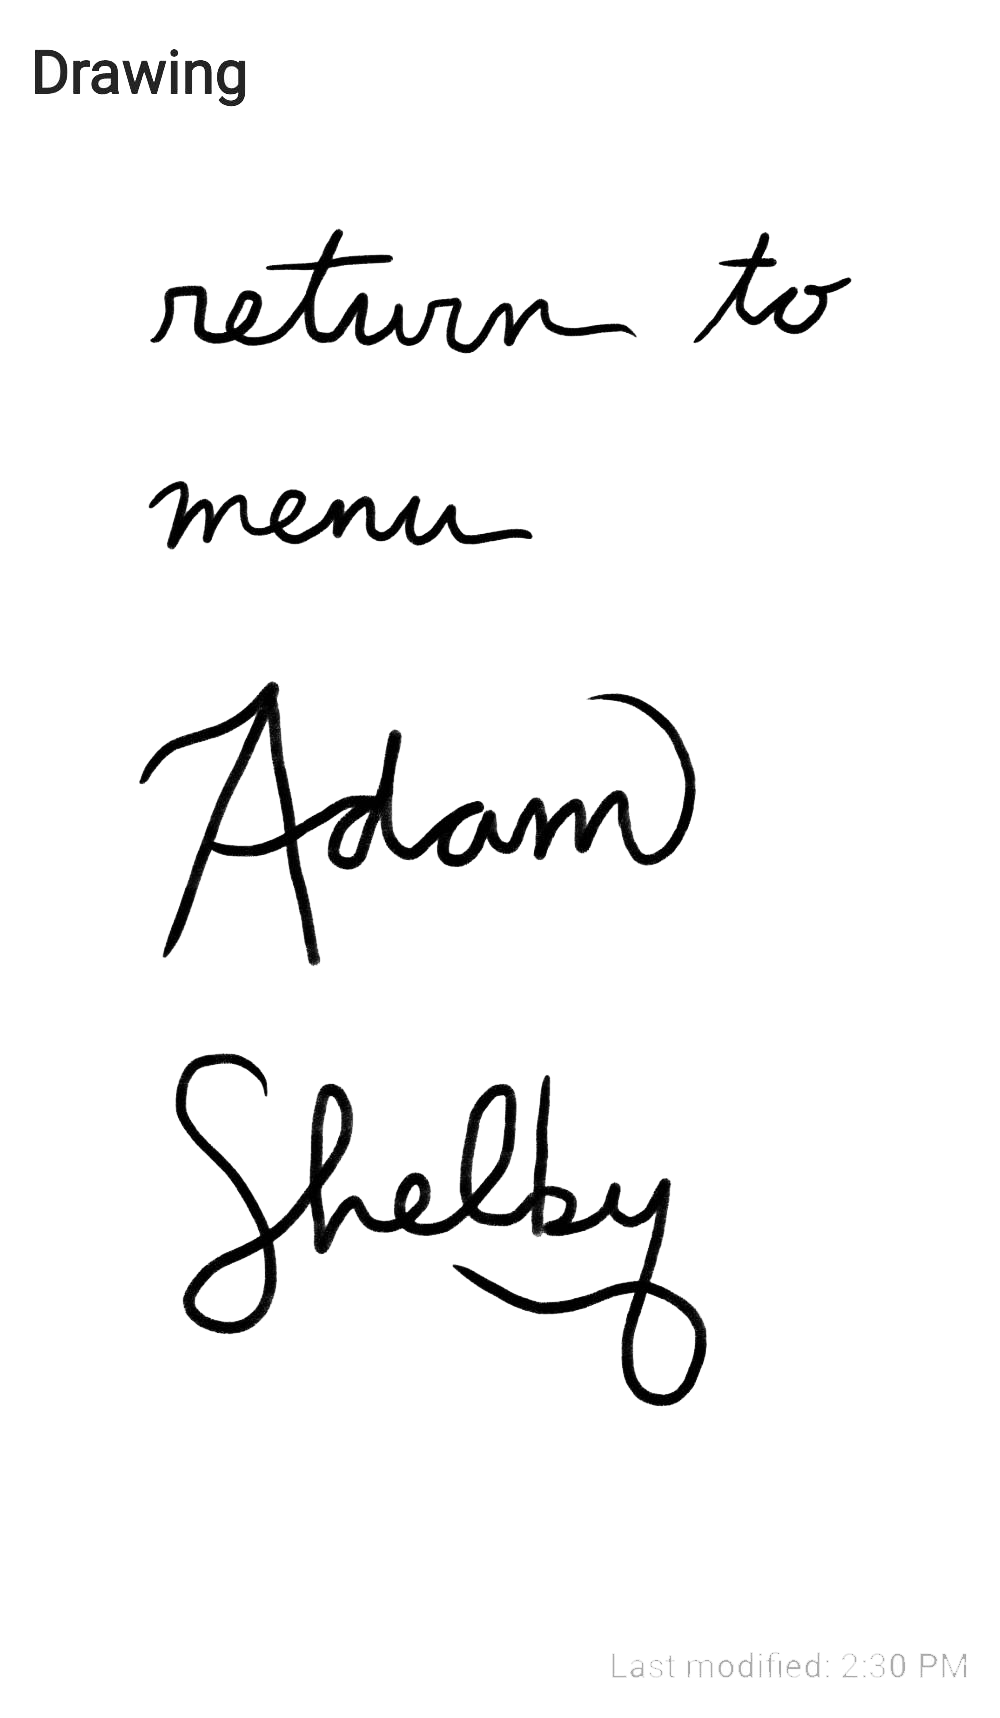 Drawing
return to
menu
Adam
Shelby
Last modified: 2:30 PM